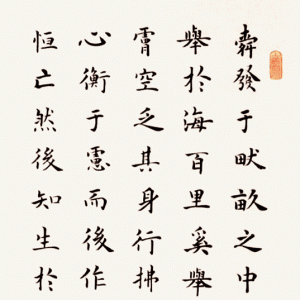 發于畎畝之中
舉於海百里奚舉
空乏其身行拂
心衡于慮而後作
恒亡然後知生於